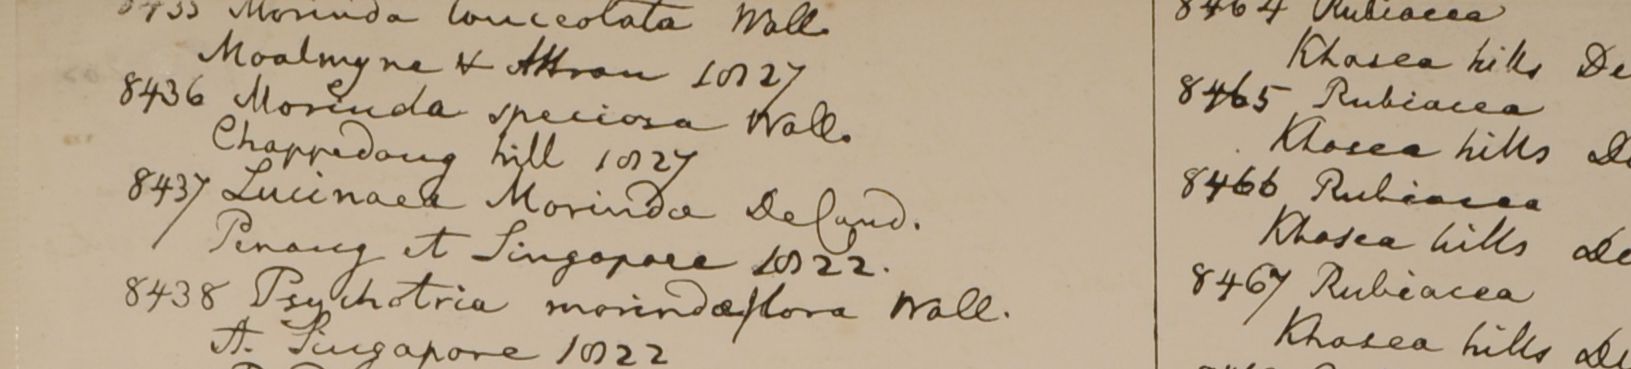 8435 Morinda lanceolata Wall.
Moalmyne & Attran 1827
8436 Morinda speciosa Wall.
Chappedong hill 1827
8437 Lucinaea Morinda DeCand.
Penang et Singapore 1822.
8438 Psychotria morindæflora Wall.
A. Singapore 1822
8464 Rubiacea
Khasea hills De
8465 Rubiacea
Khasea hills De
8466 Rubiacea
Khasea hills De
8467 Rubiacea
Khasea hills De